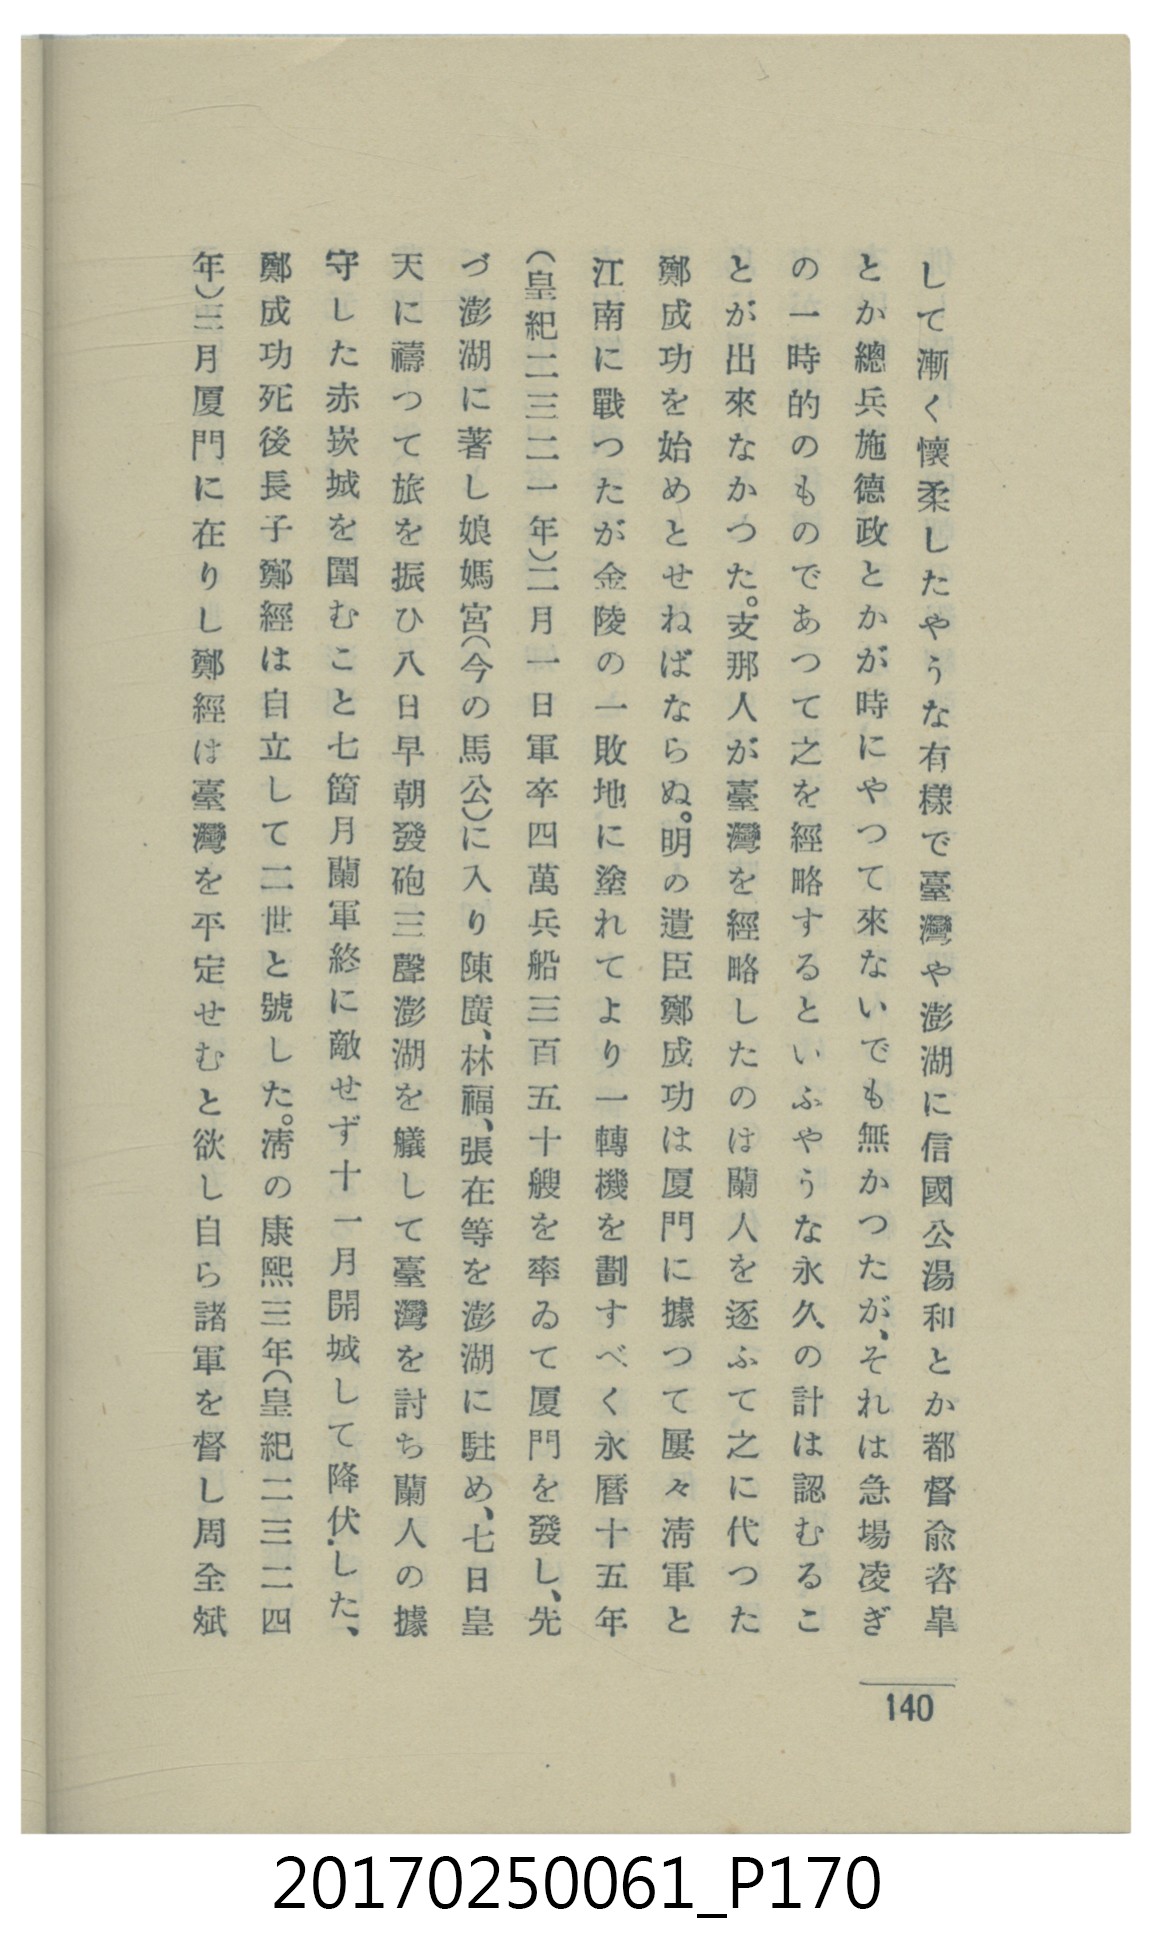 して漸く懷柔したやうな有樣で臺灣や澎湖に信國公湯和とか都督兪咨皐
とか總兵施德政とかが時にやつて來ないでも無かつたが、それは急場凌ぎ
の一時的のものであつて之を經略するといふやうな永久の計は認むるこ
とが出來なかつた。支那人が臺灣を經略したのは蘭人を逐ふて之に代つた
鄭成功を始めとせねばならぬ。明の遺臣鄭成功は厦門に據つて屢々淸軍と
江南に戰つたが金陵の一敗地に塗れてより一轉機を劃すべく永曆十五年
(皇紀二三二一年)二月一日軍卒四萬兵船三百五十艘を率ゐて厦門を發し、先
づ澎湖に著し娘媽宮(今の馬公)に入り陳廣、林福、張在等を澎湖に駐め、七日皇
天に禱つて旅を振ひ八日早朝發砲三聲澎湖を艤して臺灣を討ち蘭人の據
守した赤崁城を圍むこと七箇月蘭軍終に敵せず十一月開城して降伏した、
鄭成功死後長子鄭經は自立して二世と號した。淸の康熙三年(皇紀二三二四
年)三月厦門に在りし鄭經は臺灣を平定せむと欲し自ら諸軍を督し周全斌
140
20170250061_P170